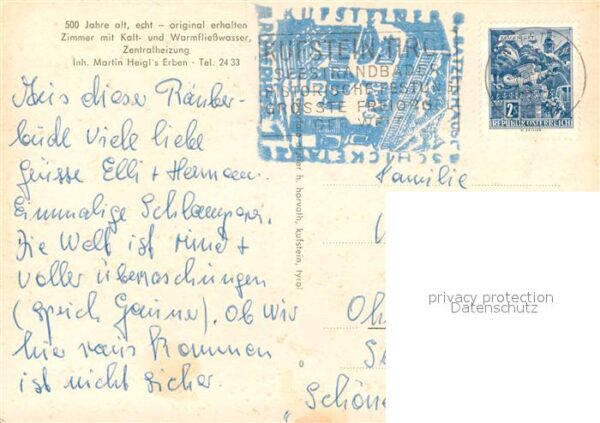 500 Jahre alt, echt – original erhalten
Zimmer mit Kalt- und Warmfließwasser,
Zentralheizung
Inh. Martin Heigl's Erben · Tel. 24 33
Aus dieser Räuber-
bude viele liebe
Grüsse Elli + Herman.
Einmalige Schlamperei.
Die Welt ist rund +
voller überraschungen
(sprich Gauner). Ob wir
hier raus kommen
ist nicht sicher.
KUFSTEINER
KUFSTEIN, TIROL
SEESTRANDBÄDER
HISTORISCHE FESTUNG
GRÖSSTE FREIORGEL
DER WELT
2S
REPUBLIK ÖSTERREICH
h. horvath, kufstein, tyrol
Familie
Schöne
privacy protection
Datenschutz